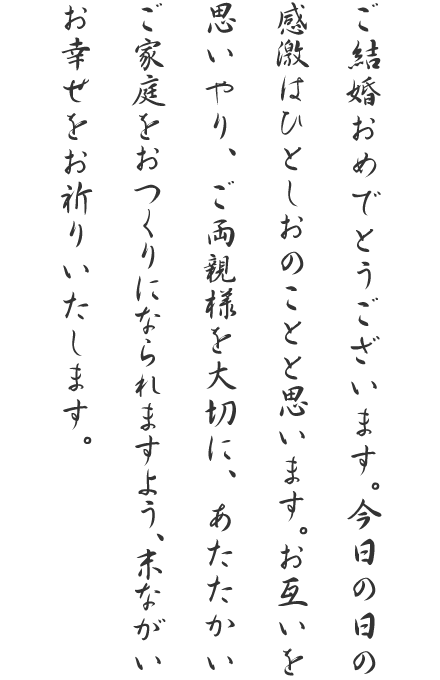 ご結婚おめでとうございます。今日の日の
感激はひとしおのことと思います。お互いを
思いやり、ご両親様を大切に、あたたかい
ご家庭をおつくりになられますよう、末ながい
お幸せをお祈りいたします。